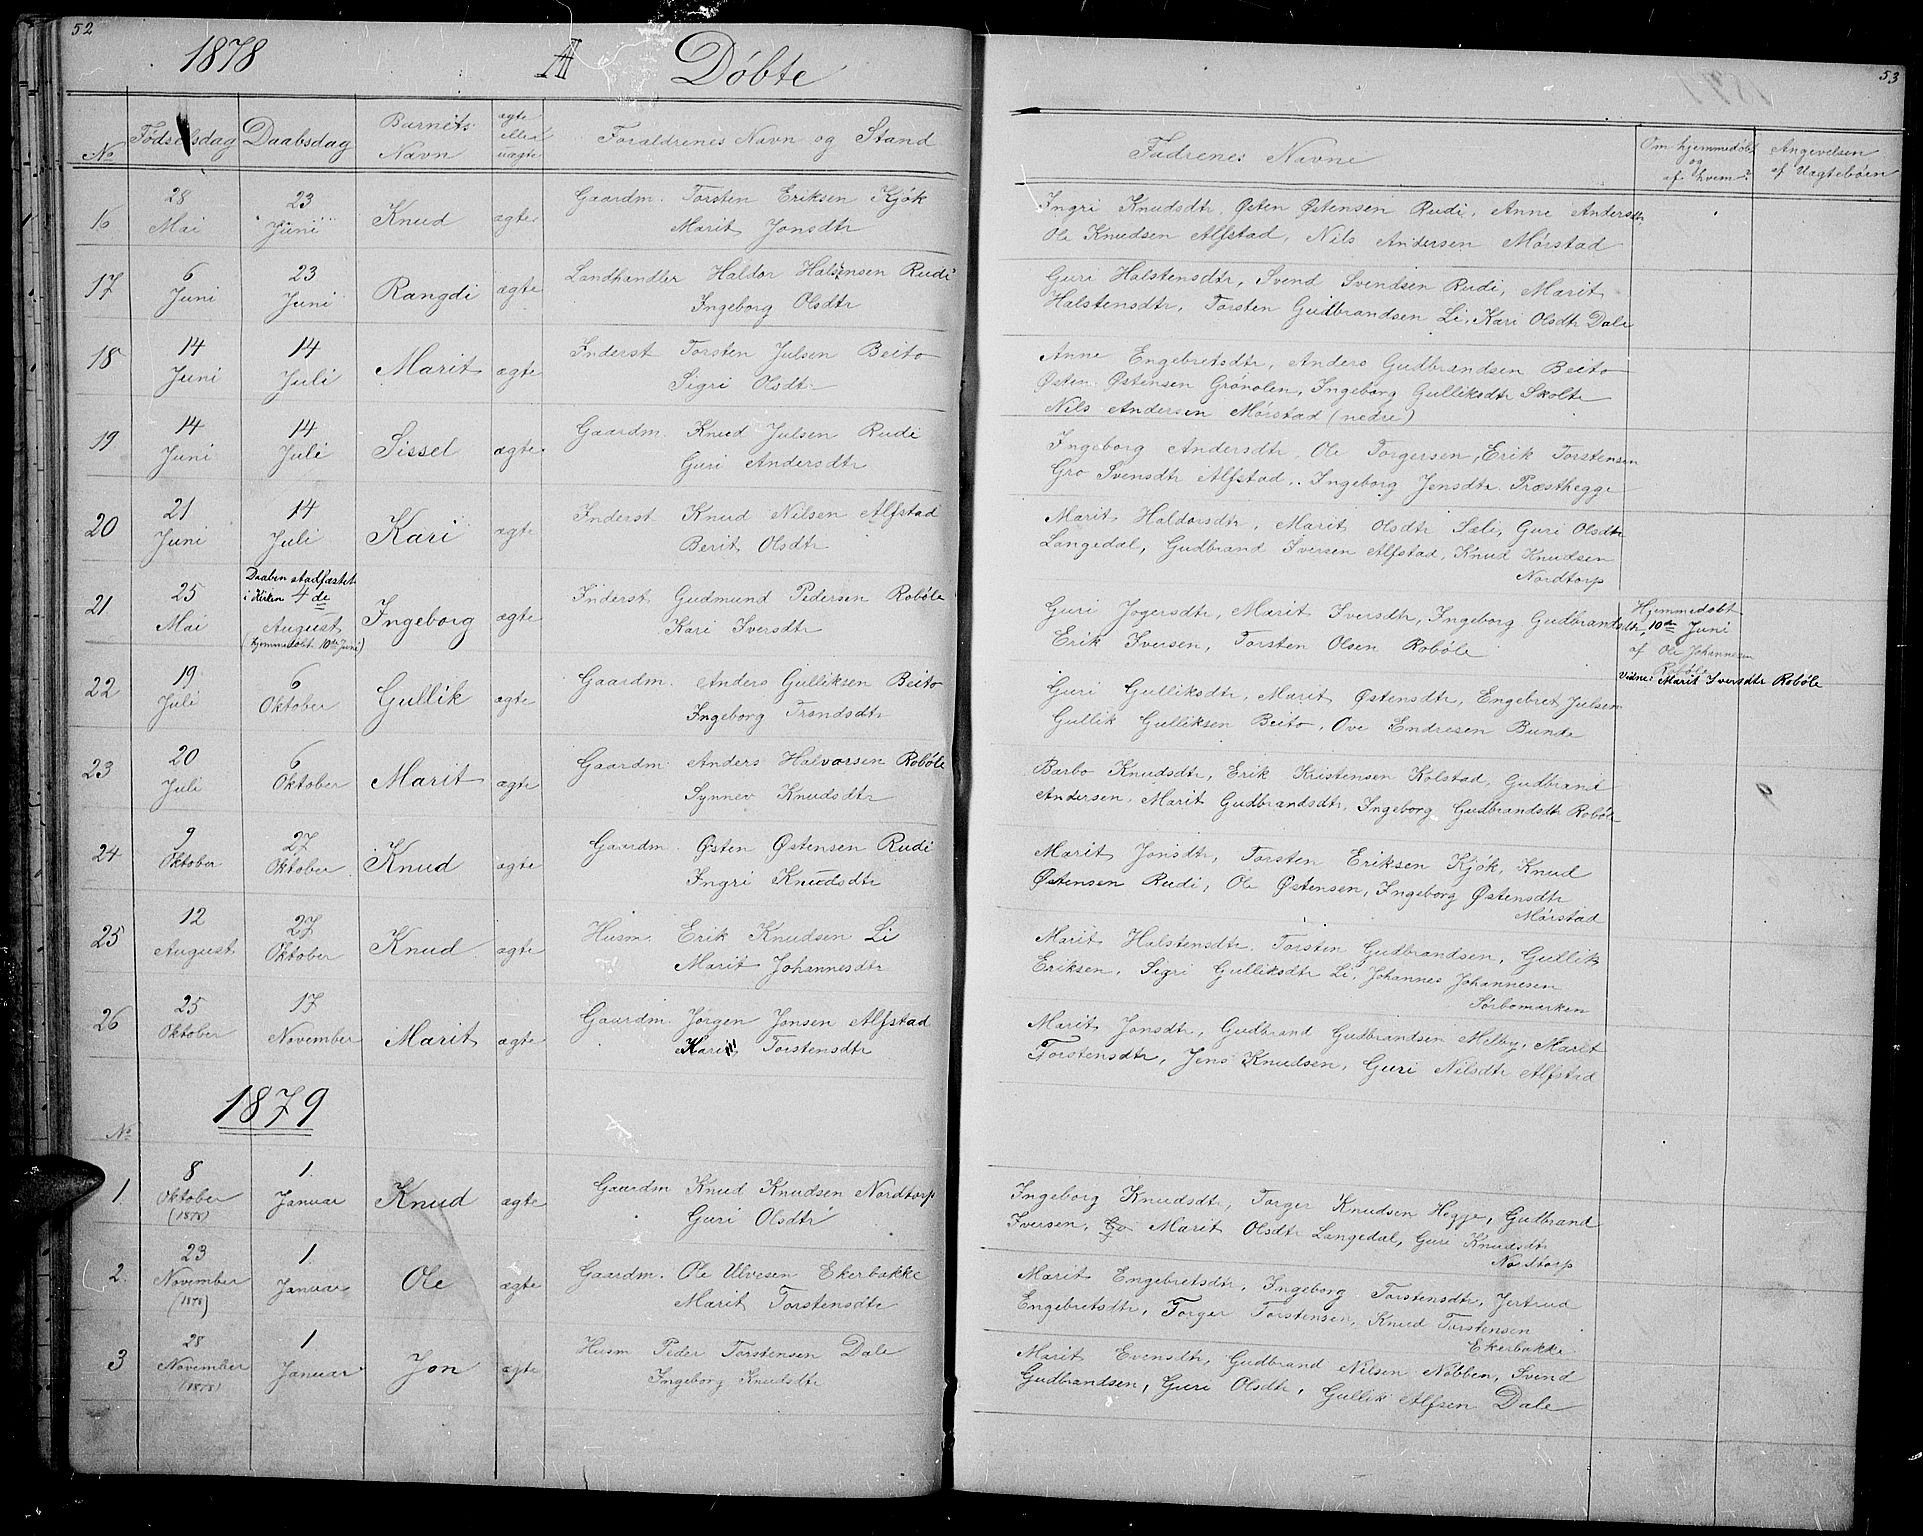 52
1878 A Døbte
No Fødselsdag Daabsdag Barnets Navn ægte eller uægte Forældrenes Navn og Stand
16 28 Mai 23 Juni Knud ægte Gaardm. Torsten Eriksen Kjøk
Marit Jonsdtr
17 6 Juni 23 Juni Rangdi ægte Landhandler Haldor Halstensen Rudi
Ingeborg Olsdtr
18 14 Juni 14 Juli Marit ægte Inderst Torsten Julsen Beito
Sigri Olsdtr
19 14 Juni 14 Juli Sissel ægte Gaardm. Knud Julsen Rudi
Guri Andersdtr
20 21 Juni 14 Juli Kari ægte Inderst Knud Nilsen Alfstad
Berit Olsdtr
21 25 Mai Daaben stadfæstet i Kirken 4de August (hjemmedøbt 10de Juni) Ingeborg ægte Inderst Gudmund Pedersen Robøle
Kari Iversdtr
22 19 Juli 6 Oktober Gullik ægte Gaardm. Anders Gulliksen Beito
Ingeborg Trondsdtr
23 20 Juli 6 Oktober Marit ægte Gaardm. Anders Halvorsen Robøle
Synnev Knudsdtr
24 9 Oktober 27 Oktober Knud ægte Gaardm. Østen Østensen Rudi
Ingri Knudsdtr
25 12 August 27 Oktober Knud ægte Husm. Erik Knudsen Li
Marit Johannesdtr
26 25 Oktober 17 November Marit ægte Gaardm. Jørgen Jonsen Alfstad
Kari Torstensdtr
1879
No
1 8 Oktober (1878) 1. Januar Knud ægte Gaardm Knud Knudsen Nordtorp
Guri Olsdtr
2. 23 November (1878) 1. Januar Ole ægte Gaardm. Ole Ulvesen Ekerbakke
Marit Torstensdtr
3 28 November (1878) 1 Januar Jon ægte Husm Peder Torstensen Dale
Ingeborg Knudsdtr
53
Fadrenes Navne Om hjemmedøbt og af hvem? Angivelsen af Uægtebørn
Ingri Knudsdtr, Østen Østensen Rudi, Anne Andersdtr
Ole Knudsen Alfstad, Nils Andersen Mørstad
Guri Halstensdtr, Svend Svendsen Rudi, Marit
Halstensdtr, Torsten Gudbrandsen Li, Kari Olsdtr Dale
Anne Engebretsdtr, Anders Gudbrandsen Beito
Østen Østensen Grønolen, Ingeborg Gulliksdtr Skolte
Nils Andersen Mørstad (nedre)
Ingeborg Andersdtr, Ole Torgersen, Erik Torstensen
Gro Svensdtr Alfstad, Ingeborg Jensdtr Præsthegge
Marit Haldorsdtr, Marit Olsdtr Sæli, Guri Olsdtr
Langedal, Gudbrand Iversen Alfstad, Knud Knudsen
Nordtorp
Guri Jogersdtr, Marit Iversdtr, Ingeborg Gudbrandsdtr,
Erik Iversen, Torsten Olsen Robøle
Hjemmedøbt
10de Juni
af Ole Johannesen
Robøle
Vidne: Marit Iversdtr Robøle
Guri Gulliksdtr, Marit Østensdtr, Engebret Julsen
Gullik Gulliksen Beito, Ove Endresen Bunde
Barbo Knudsdtr, Erik Kristensen Kolstad, Gudbrand
Andersen, Marit Gudbrandsdtr, Ingeborg Gudbrandsdtr Robøle
Marit Jonsdtr, Torsten Eriksen Kjøk, Knud
Østensen Rudi, Ole Østensen, Ingeborg Østensdtr
Mørstad
Marit Halstensdtr, Torsten Gudbrandsen, Gullik
Eriksen, Sigri Gulliksdtr Li, Johannes Johannesen
Sørbomarken
Marit Jonsdtr, Gudbrand Gudbrandsen Melby, Marit
Torstensdtr, Jens Knudsen, Guri Nilsdtr Alfstad
Ingeborg Knudsdtr, Torger Knudsen Hegge, Gudbrand
Iversen, Marit Olsdtr Langedal, Guri Knudsdtr
Nordtorp
Marit Engebretsdtr, Ingeborg Torstensdtr, Jertrud
Engebretsdtr, Torger Torstensen, Knud Torstensen
Ekerbakke
Marit Evensdtr, Gudbrand Nilsen Nøbben, Svend
Gudbrandsen, Guri Olsdtr, Gullik Alfsen Dale